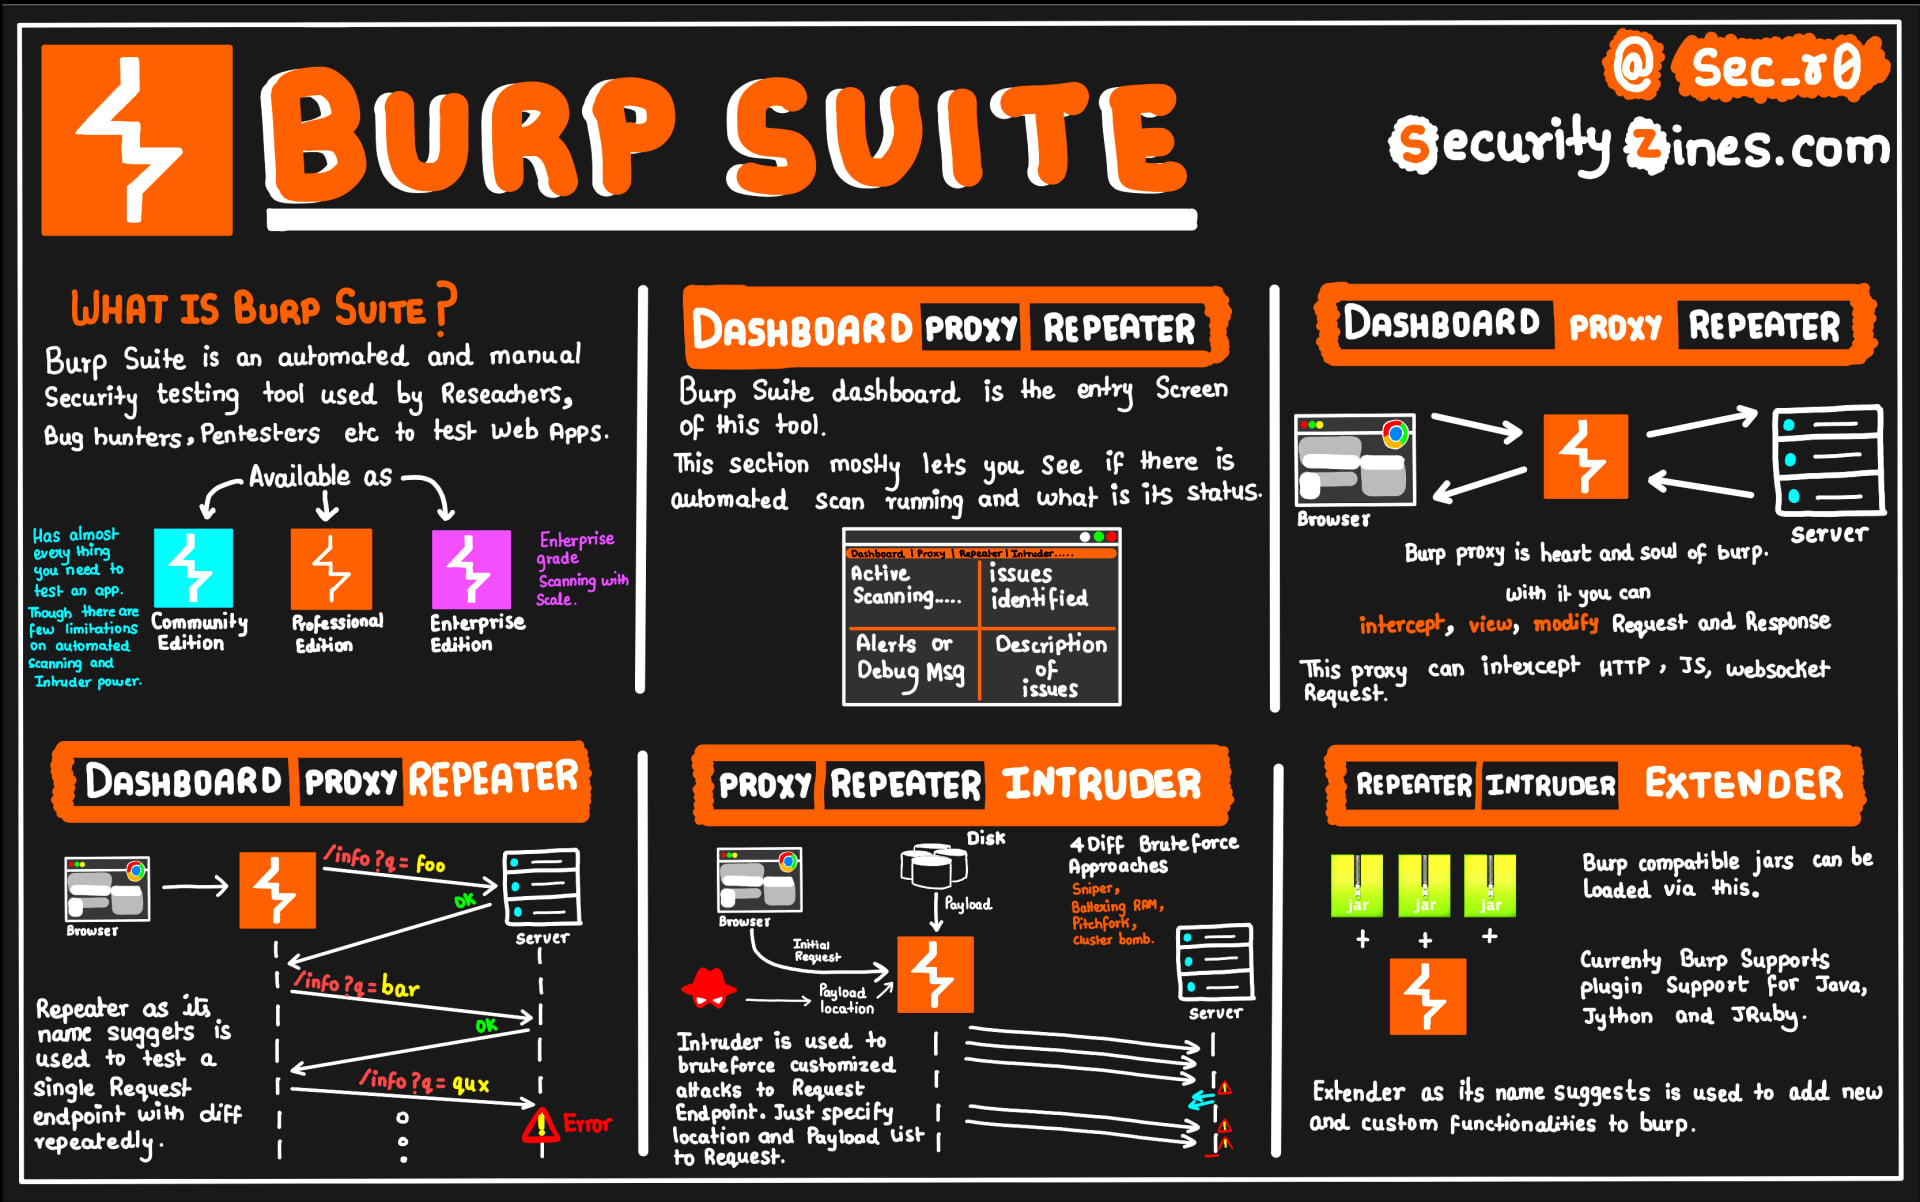 BURP SUITE
@ Sec_r0
Security Zines.com
WHAT IS BURP SUITE?
Burp Suite is an automated and manual
Security testing tool used by Reseachers,
Bug hunters, Pentesters etc to test Web Apps.
Available as
Has almost
every thing
you need to
test an app.
Though there are
few limitations
on automated
Scanning and
Intruder power.
Community
Edition
Professional
Edition
Enterprise
Edition
Enterprise
grade
Scanning with
Scale.
DASHBOARD PROXY REPEATER
Burp Suite dashboard is the entry Screen
of this tool.
This section mostly lets you see if there is
automated scan running and what is its status.
Dashboard | Proxy | Repeater | Intruder.....
Active
Scanning.....
issues
identified
Alerts or
Debug Msg
Description
of
issues
DASHBOARD PROXY REPEATER
Browser
Server
Burp proxy is heart and soul of burp.
with it you can
intercept, view, modify Request and Response
This proxy can intercept HTTP, JS, websocket
Request.
DASHBOARD PROXY REPEATER
Browser
/info?q=foo
OK
Server
/info?q=bar
OK
/info?q=qux
Error
Repeater as its
name suggets is
used to test a
single Request
endpoint with diff
repeatedly.
PROXY REPEATER INTRUDER
Browser
Disk
Payload
Initial
Request
Payload
location
4 Diff Bruteforce
Approaches
Sniper,
Battering RAM,
Pitchfork,
cluster bomb.
Server
Intruder is used to
bruteforce customized
attacks to Request
Endpoint. Just specify
location and Payload List
to Request.
REPEATER INTRUDER EXTENDER
jar
jar
jar
+
+
+
Burp compatible jars can be
Loaded via this.
Currenty Burp Supports
plugin Support for Java,
Jython and JRuby.
Extender as its name suggests is used to add new
and custom functionalities to burp.